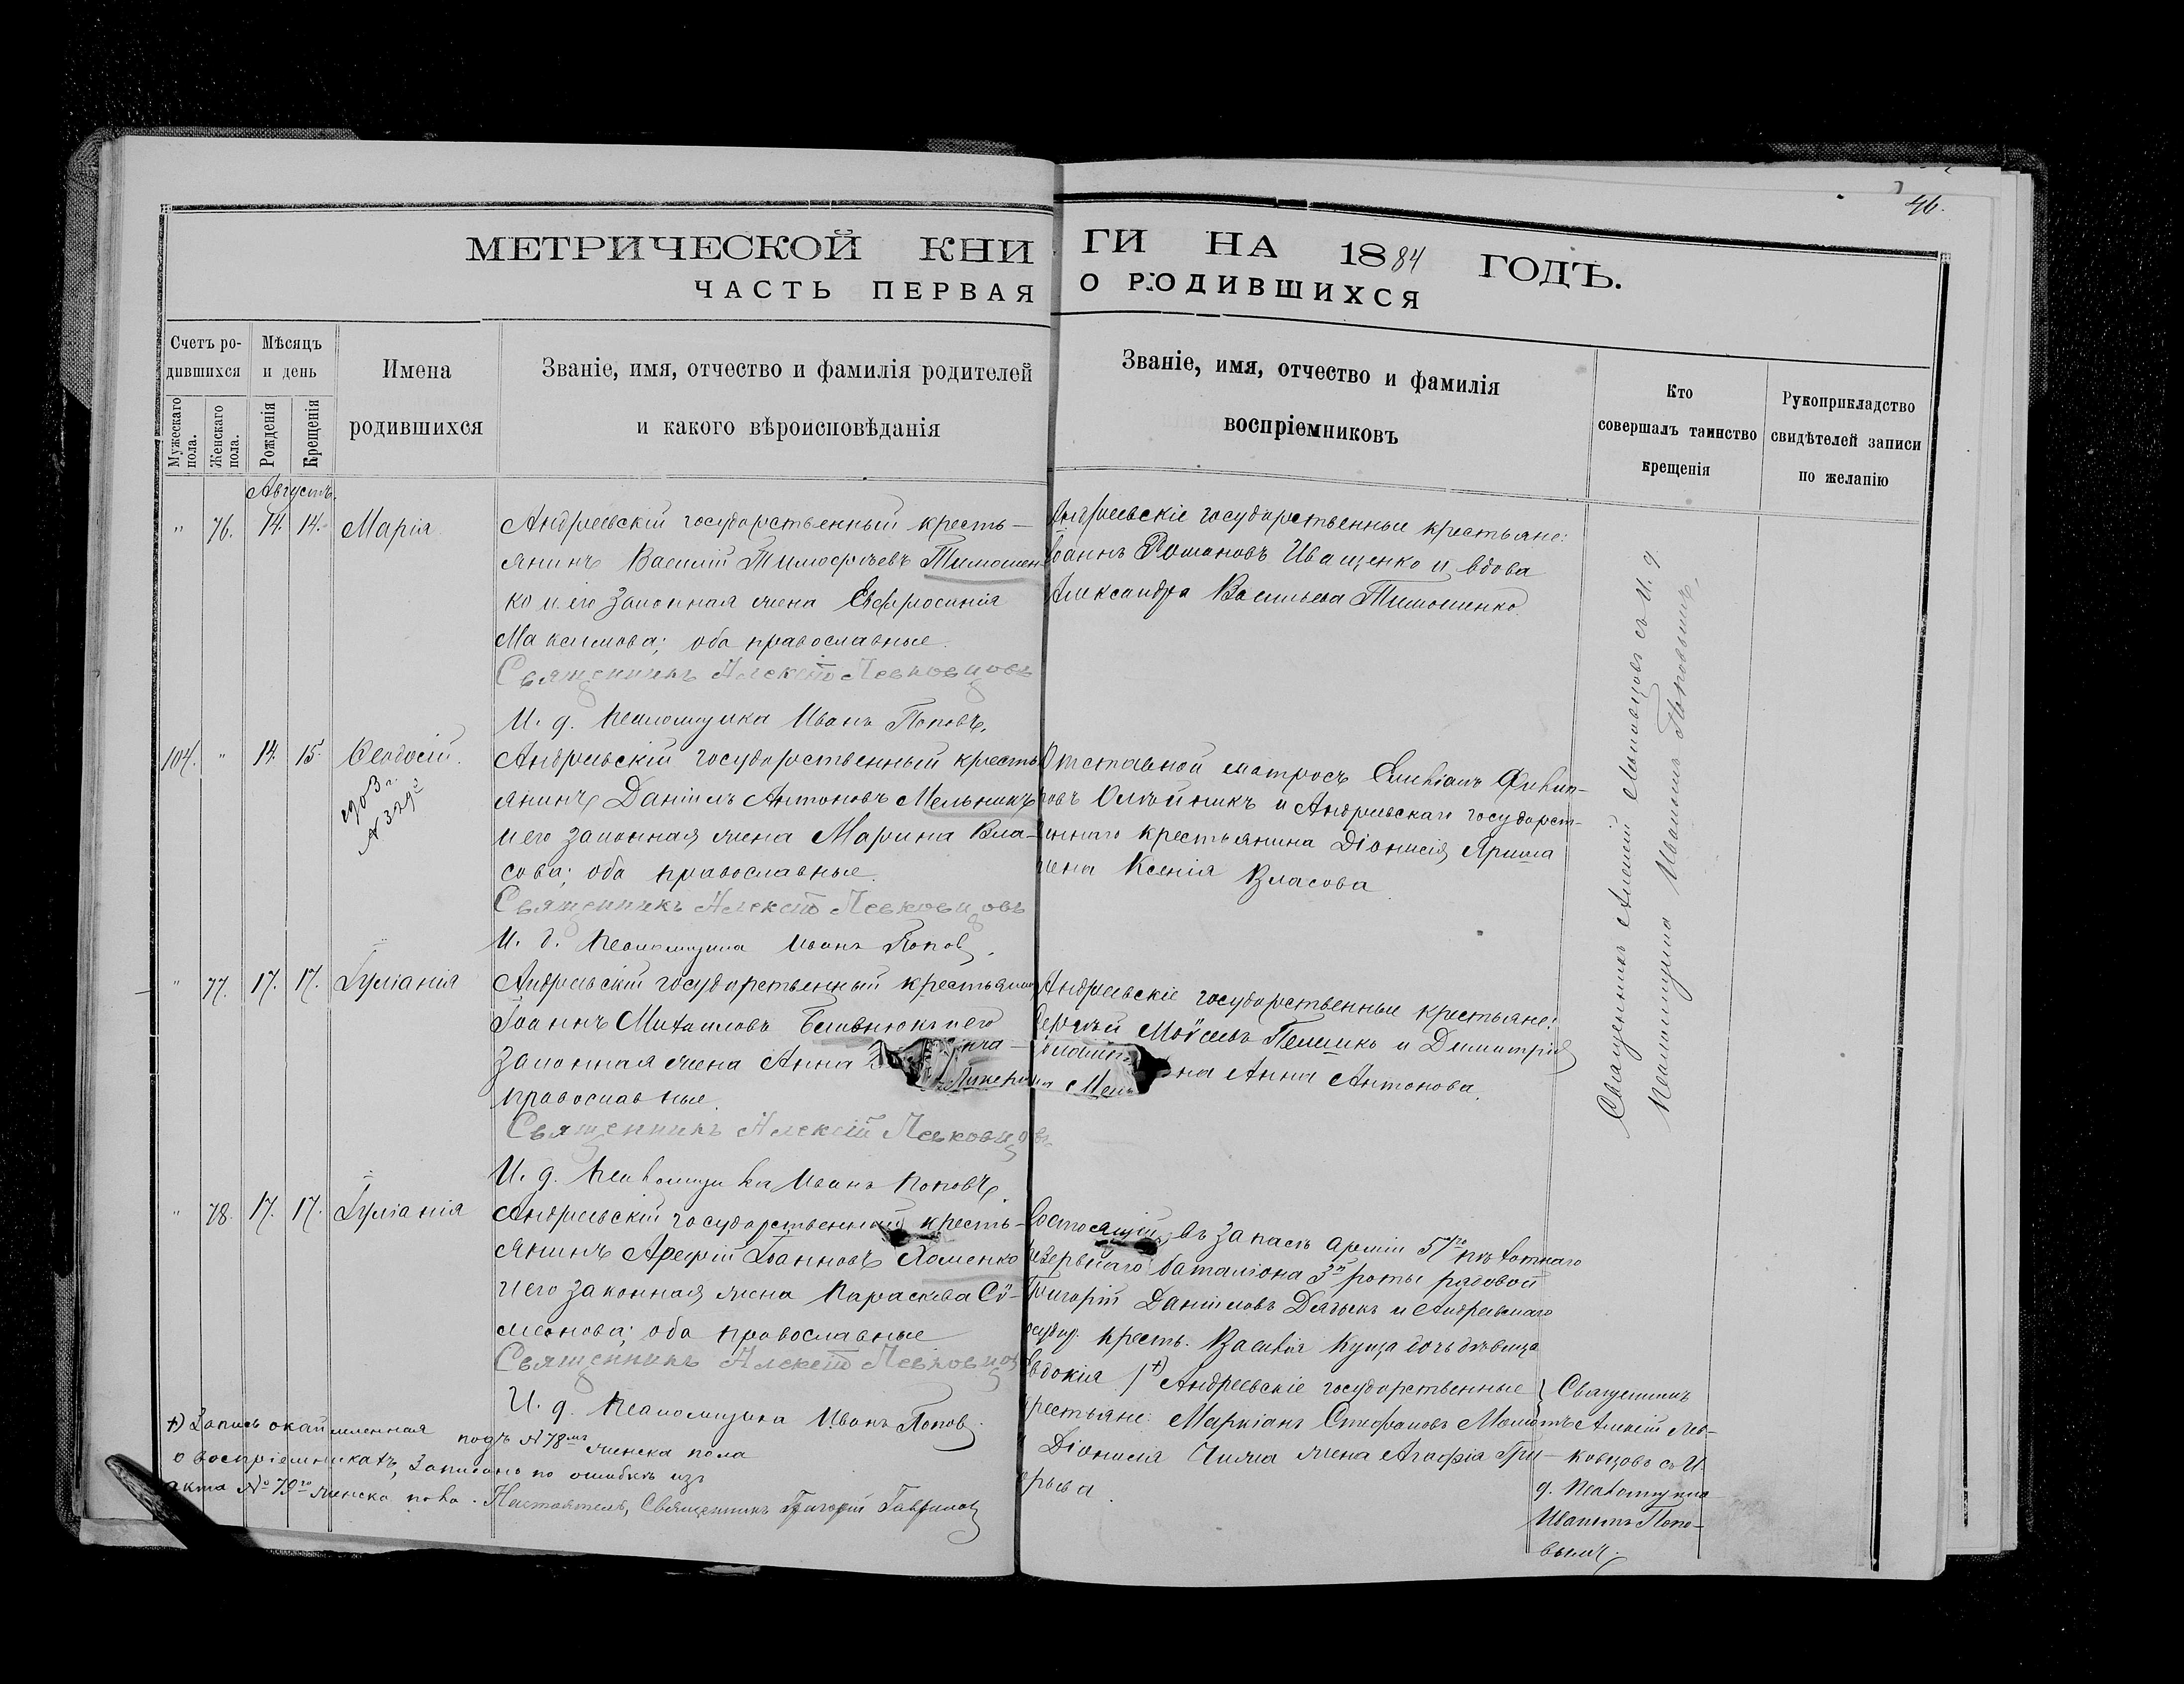 46.
МЕТРИЧЕСКОЙ КНИГИ НА 1884 ГОДЪ.
ЧАСТЬ ПЕРВАЯ О РОДИВШИХСЯ
Счетъ ро-
дившихся
Мужескаго пола.
Женскаго пола.
Мѣсяцъ
и день
Рожденія
Крещенія
Имена
родившихся
Званіе, имя, отчество и фамилія родителей
и какого вѣроисповѣданія
Званіе, имя, отчество и фамилія
воспріемниковъ
Кто
совершалъ таинство
крещенія
Рукоприкладство
свидѣтелей записи
по желанію
Августъ.
" 76. 14. 14. Марія
Андреевскій государственный кресть-
янинъ Василій Тимофѣевъ Тимошен
ко и его законная жена Евфросинія
Максимова; оба православные.
Священникъ Алексій Левковцовъ
И. д. псаломщика Иванъ Поповъ.
Андреевскіе государственные крестьяне:
Іоаннъ Романовъ Иващенко и вдова
Александра Васильева Тимошенко.
104. " 14. 15. Ѳеодосій.
Андреевскій государственный кресть
янинъ Даніилъ Антоновъ Мельникъ
и его законная жена Марина Вла-
сова; оба православные.
Священникъ Алексій Левковцовъ
И. д. псаломщика Иванъ Поповъ.
Отставной матросъ
Олейникъ и Андреевскаго государст-
веннаго крестьянина Діонисія
жена Ксенія Власова
" 77. 17. 17. Іуліанія
Андреевскій государственный крестьянинъ
Іоаннъ Михаиловъ и его
законная жена Анна
православные.
Священникъ Алексій Левковцовъ
И. д. псаломщика Иванъ Поповъ.
Андреевскіе государственные крестьяне:
Моѵсеевъ и Димитрія
жена Анна Антонова.
" 78. 17. 17. Іуліанія
Андреевскій государственный кресть-
янинъ Арефій Іоанновъ Хоменко
и его законная жена Параскева Сѵ-
меонова; оба православные
Священникъ Алексій Левковцовъ
И. д. псаломщика Иванъ Поповъ.
Состоящій въ запасѣ арміи 57го пѣхотнаго
резервнаго баталіона 3й роты рядовой
Григорій Даніиловъ и Андреевскаго
госуд. кресть. Василія Куца дочь дѣвица
Евдокія /+) Андреевскіе государственные
крестьяне: Маркіанъ Стефановъ
Діонисія жена Агафія Гри-
горьева.
Священникъ Алексій Левковцовъ съ И. д.
псаломщика Иваномъ Поповымъ.
Священникъ
Алексій Лев-
ковцовъ съ И.
д. псаломщика
Иваномъ Попо-
вымъ.
+) Запись окаймленная подъ № 78мъ женска пола
о воспріемникахъ, записана по ошибкѣ изъ
акта № 79го женска пола. Настоятель, Священникъ Григорій Гавриловъ